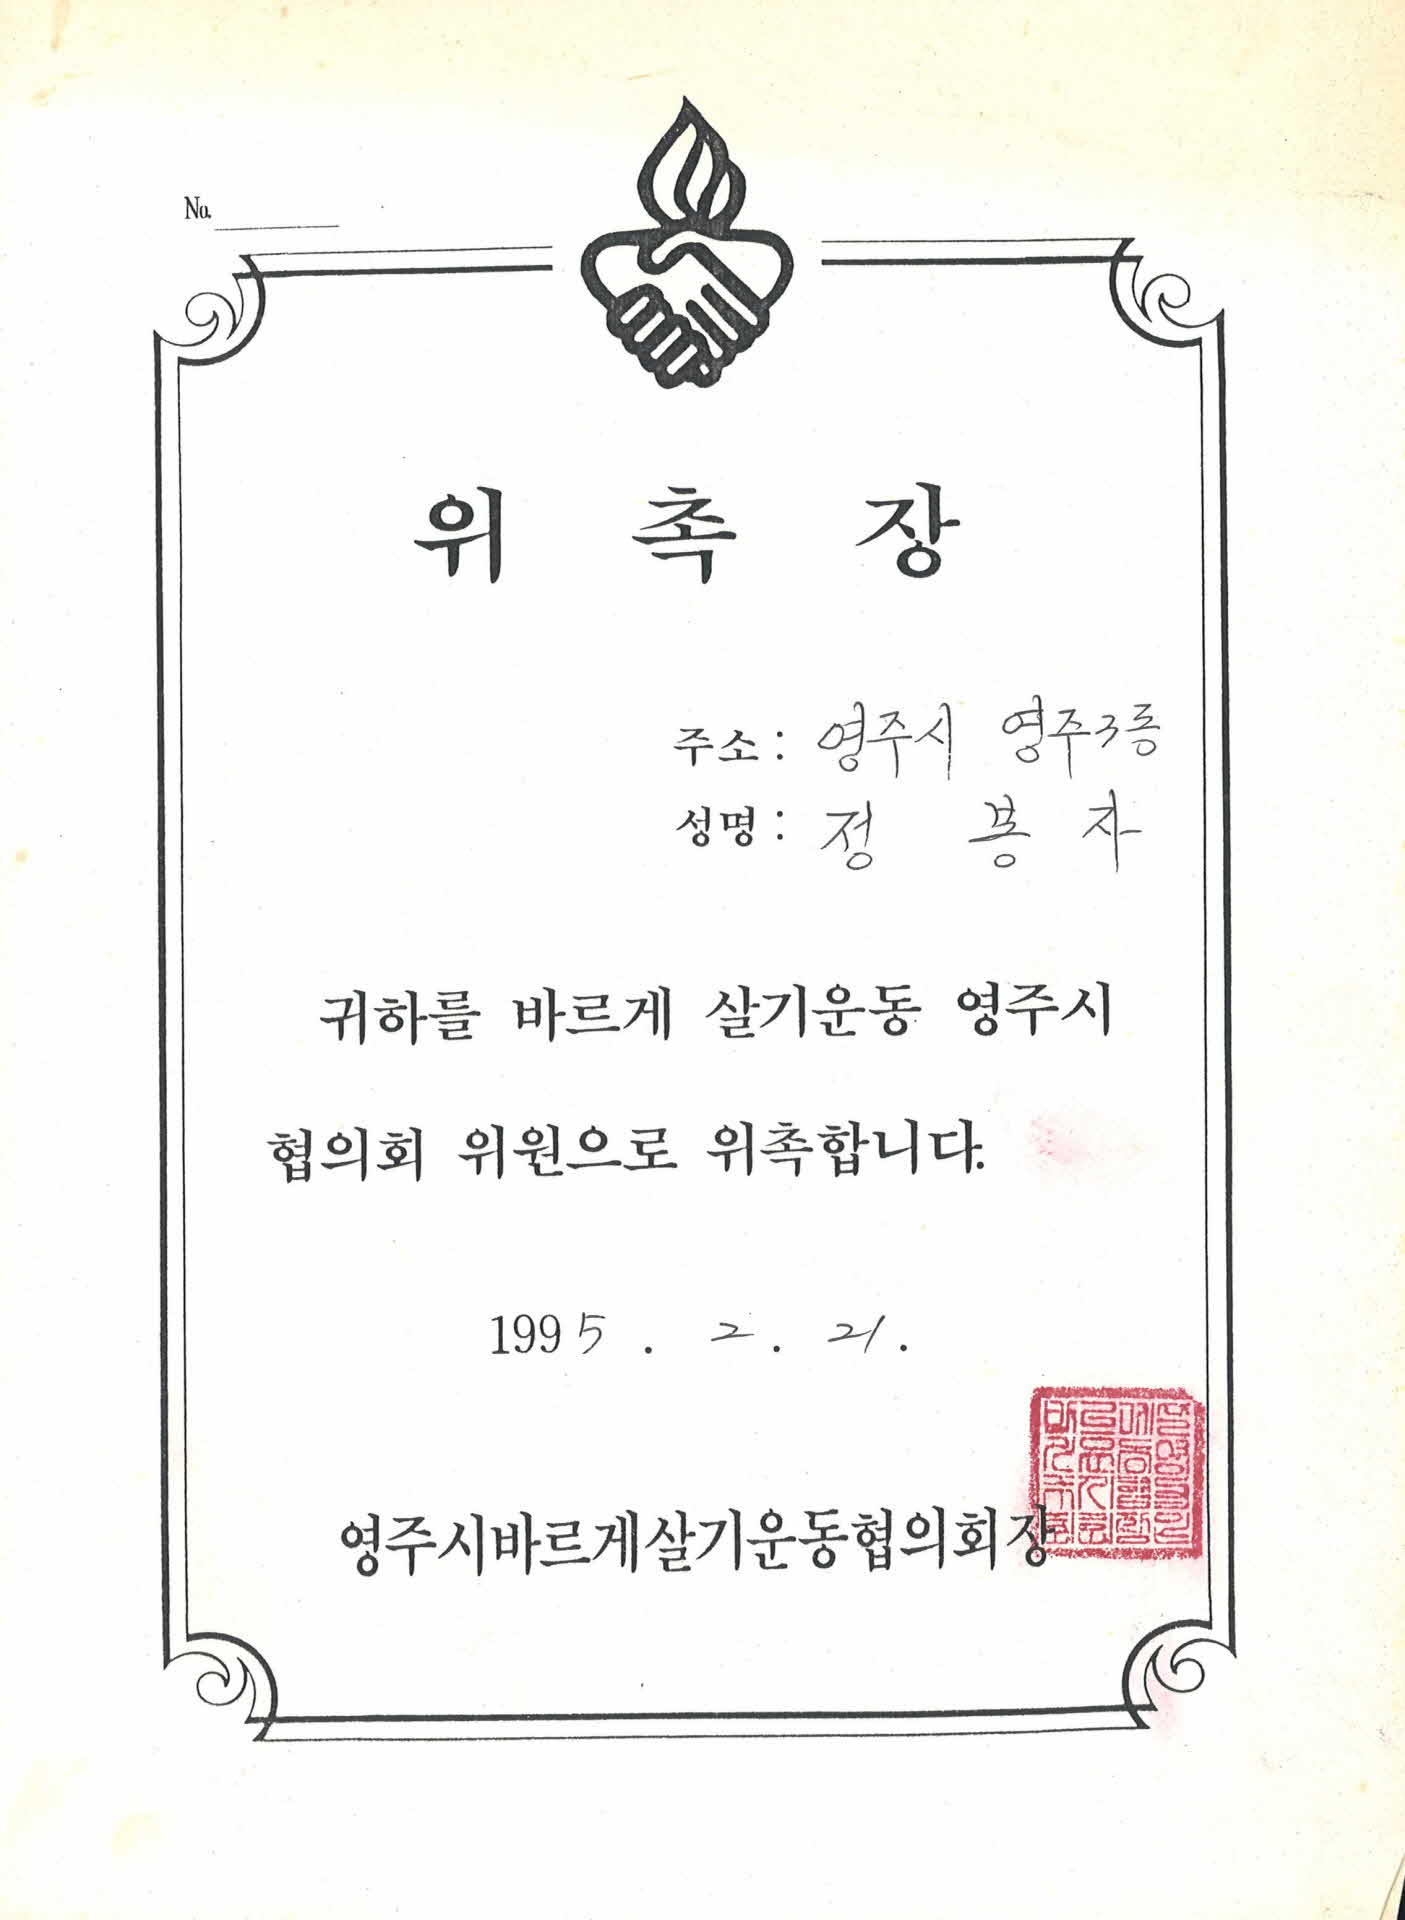 No.
위 촉 장
주소: 영주시 영주3동
성명: 정 봉 자
귀하를 바르게 살기운동 영주시
협의회 위원으로 위촉합니다.
1995. 2. 21.
영주시바르게살기운동협의회장